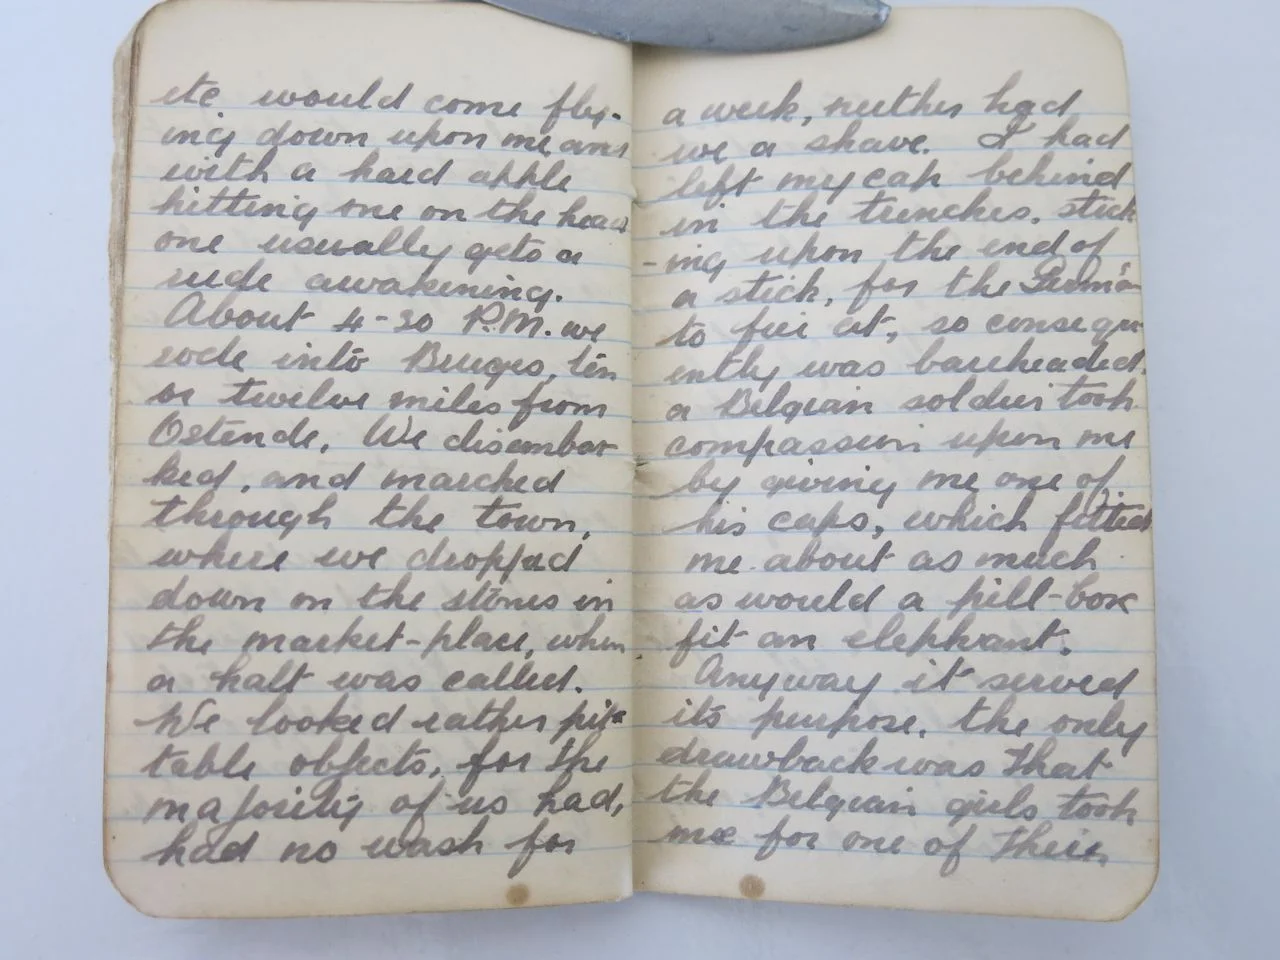 etc would come fly-
ing down upon me, and
with a hard apple
hitting one on the head
one usually gets a
rude awakening.
About 4-30 P.M. we
rode into Bruges, ten
or twelve miles from
Ostende. We disembar
ked, and marched
through the town,
where we dropped
down on the stones in
the market-place, when
a halt was called.
We looked rather pit
table objects, for the
majority of us had,
had no wash for
a week, neither had
we a shave. I had
left my cap behind
in the trenches, stick
-ing upon the end of
a stick, for the Germans
to fire at, so consequ
ently was bareheaded.
a Belgian soldier took
compassion upon me
by giving me one of
his caps, which fitted
me about as much
as would a pill-box
fit an elephant.
Anyway it served
its purpose, the only
drawback was that
the Belgian girls took
me for one of their